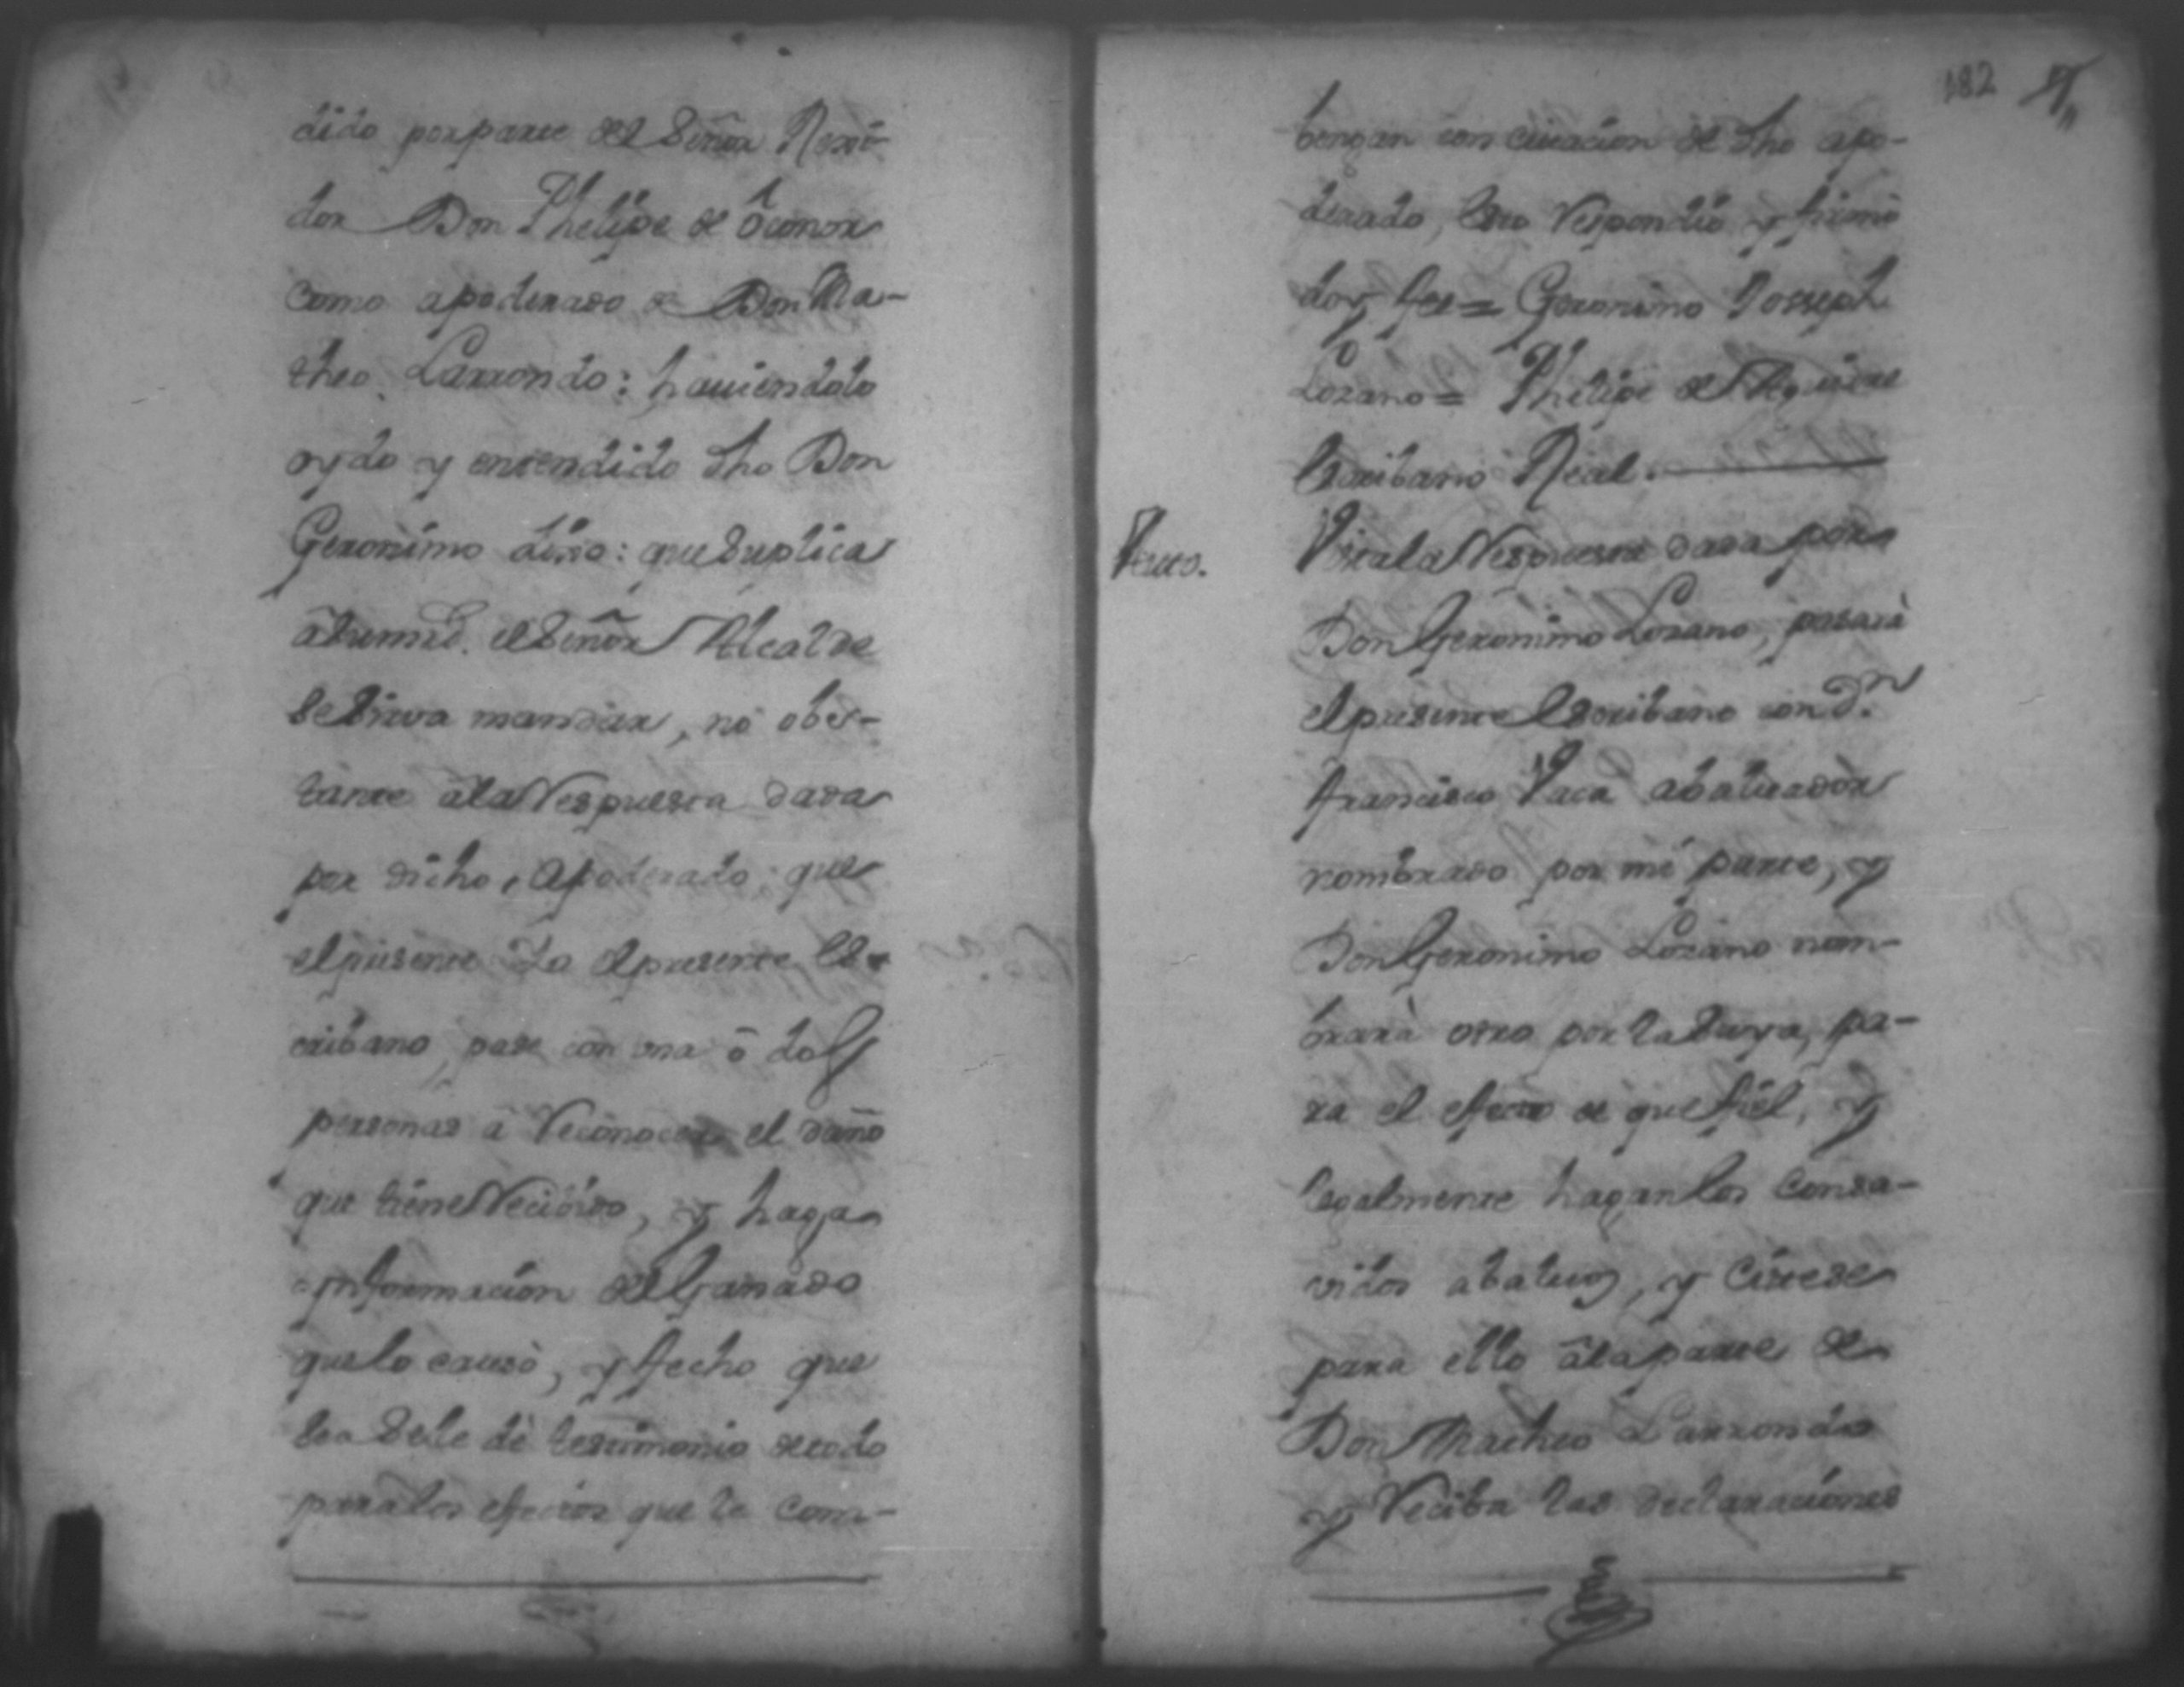 dido por parte del Señor Rexi-
dor Don Phelipe de Oconor
como apoderado de Don Ma-
theo Larrondo: haviendolo
oydo y entendido dho Don
Geronimo dixo: que suplica
â su mrd. el Señor Alcalde
se sirva mandar, no obs-
tante â la Respuesta dada
por dicho Apoderado, que
el presente Yo el presente Es-
cribano, pase con una ô dos
personas â Reconocer el daño
que tiene Recivido, y haga
ynformacion del Ganado
que lo causò, y fecho que
sea se le dè testimonio de todo
para los efectos que le com-
182
bengan con citacion de dho apo-
derado, Esto Respondiò y firmò
doy fee = Geronimo Josseph
Lozano = Phelipe de Aguirre
Escribano Real.
Auto.
Vista la Respuesta dada por
Don Geronimo Lozano, pasarà
el presente Escribano con Dn.
Francisco Vaca abaluador
nombrado por mi parte, y
Don Geronimo Lozano nom-
brarà otro por la suya, pa-
ra el efecto de que fiel, y
legalmente hagan los consa-
vidos abaluos, y citese
para ello â la parte de
Don Matheo Larrondo
y Reciba las declaraciones